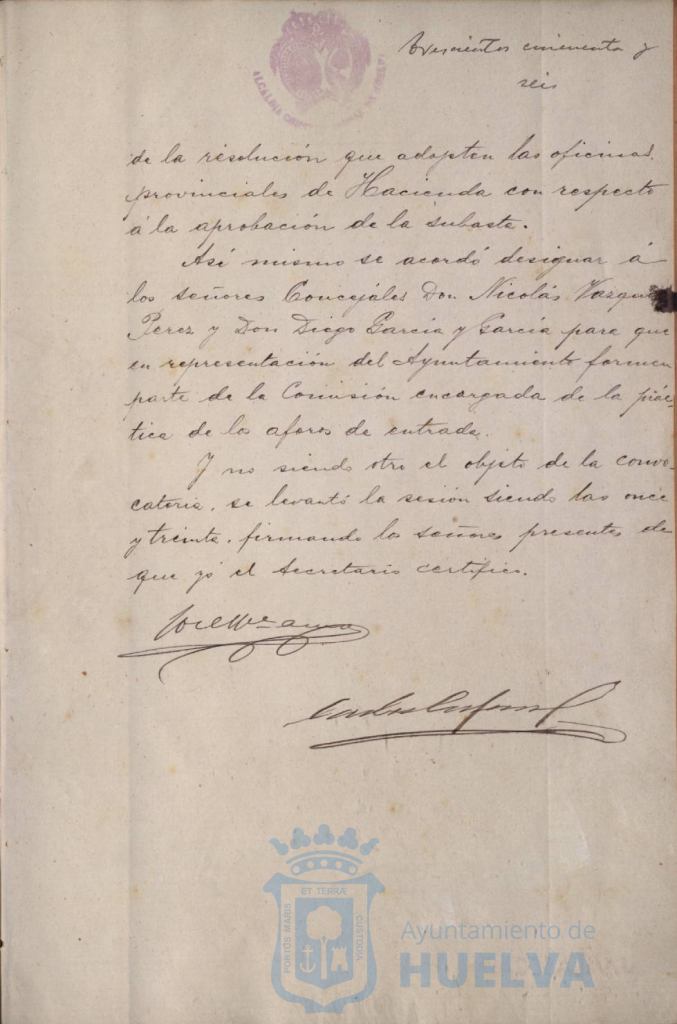 trescientos cincuenta y
seis
de la resolución que adopten las oficinas
provinciales de Hacienda con respecto
á la aprobación de la subasta.
Así mismo se acordó designar á
los señores Concejáles Don Nicolás Vazquez
Perez y Don Diego García y García para que
en representación del Ayuntamiento formen
parte de la Comisión encargada de la prác-
tica de los aforos de entrada.
Y no siendo otro el objeto de la convo-
catoria, se levantó la sesión siendo las once
y treinta, firmando los señores presentes de
que yó el Secretario certifico.
ET TERRÆ
PORTUS MARIS
CUSTODIA
Ayuntamiento de
HUELVA